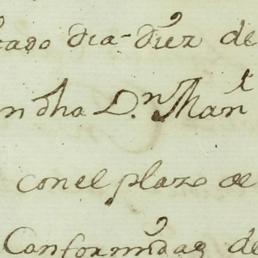 tado dia diez de
ndha D.n Man.l
con el plazo de
Conformidad de